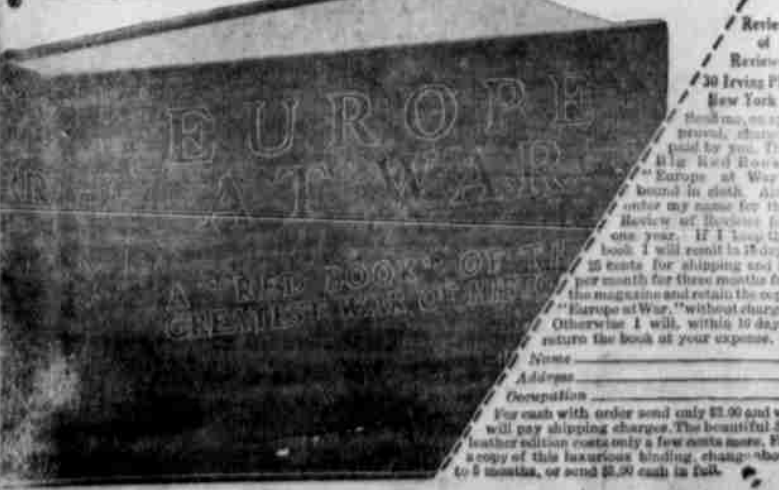 EUROPE
AT WAR
A "RED BOOK" OF TH
GREATEST WAR OF HISTO
Revie
of
Review
30 Irving P
New York
Send me, on a
proval, charg
paid by you, T
Big Red Boo
"Europe at War
bound in cloth. Al
enter my name for t
Review of Reviews f
one year. If I keep t
book I will remit in 10 day
25 cents for shipping and
per month for three months f
the magazine and retain the co
"Europe at War," without charg
Otherwise I will, within 10 da
return the book at your expense.
Name
Address
Occupation
For cash with order send only $3.00 and
will pay shipping charges. The beautiful
leather edition costs only a few cents more. F
a copy of this luxurious binding, change abo
to 5 months, or send cash in full.